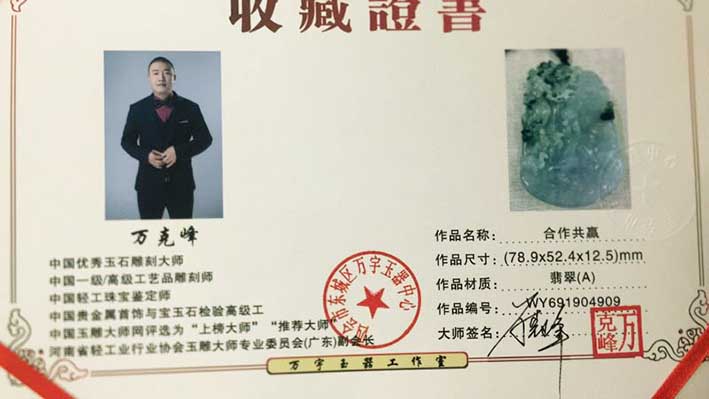 收藏證書
万克峰
中国优秀玉石雕刻大师
中国一级/高级工艺品雕刻师
中国轻工珠宝鉴定师
中国贵金属首饰与宝玉石检验高级工
中国玉雕大师网评选为“上榜大师”“推荐大师”
河南省轻工业行业协会玉雕大师专业委员会(广东)副会长
作品名称: 合作共赢
作品尺寸: (78.9x52.4x12.5)mm
作品材质: 翡翠(A)
作品编号: WY691904909
大师签名:
万克峰
四会市东城区万宇玉器中心
万宇玉器工作室